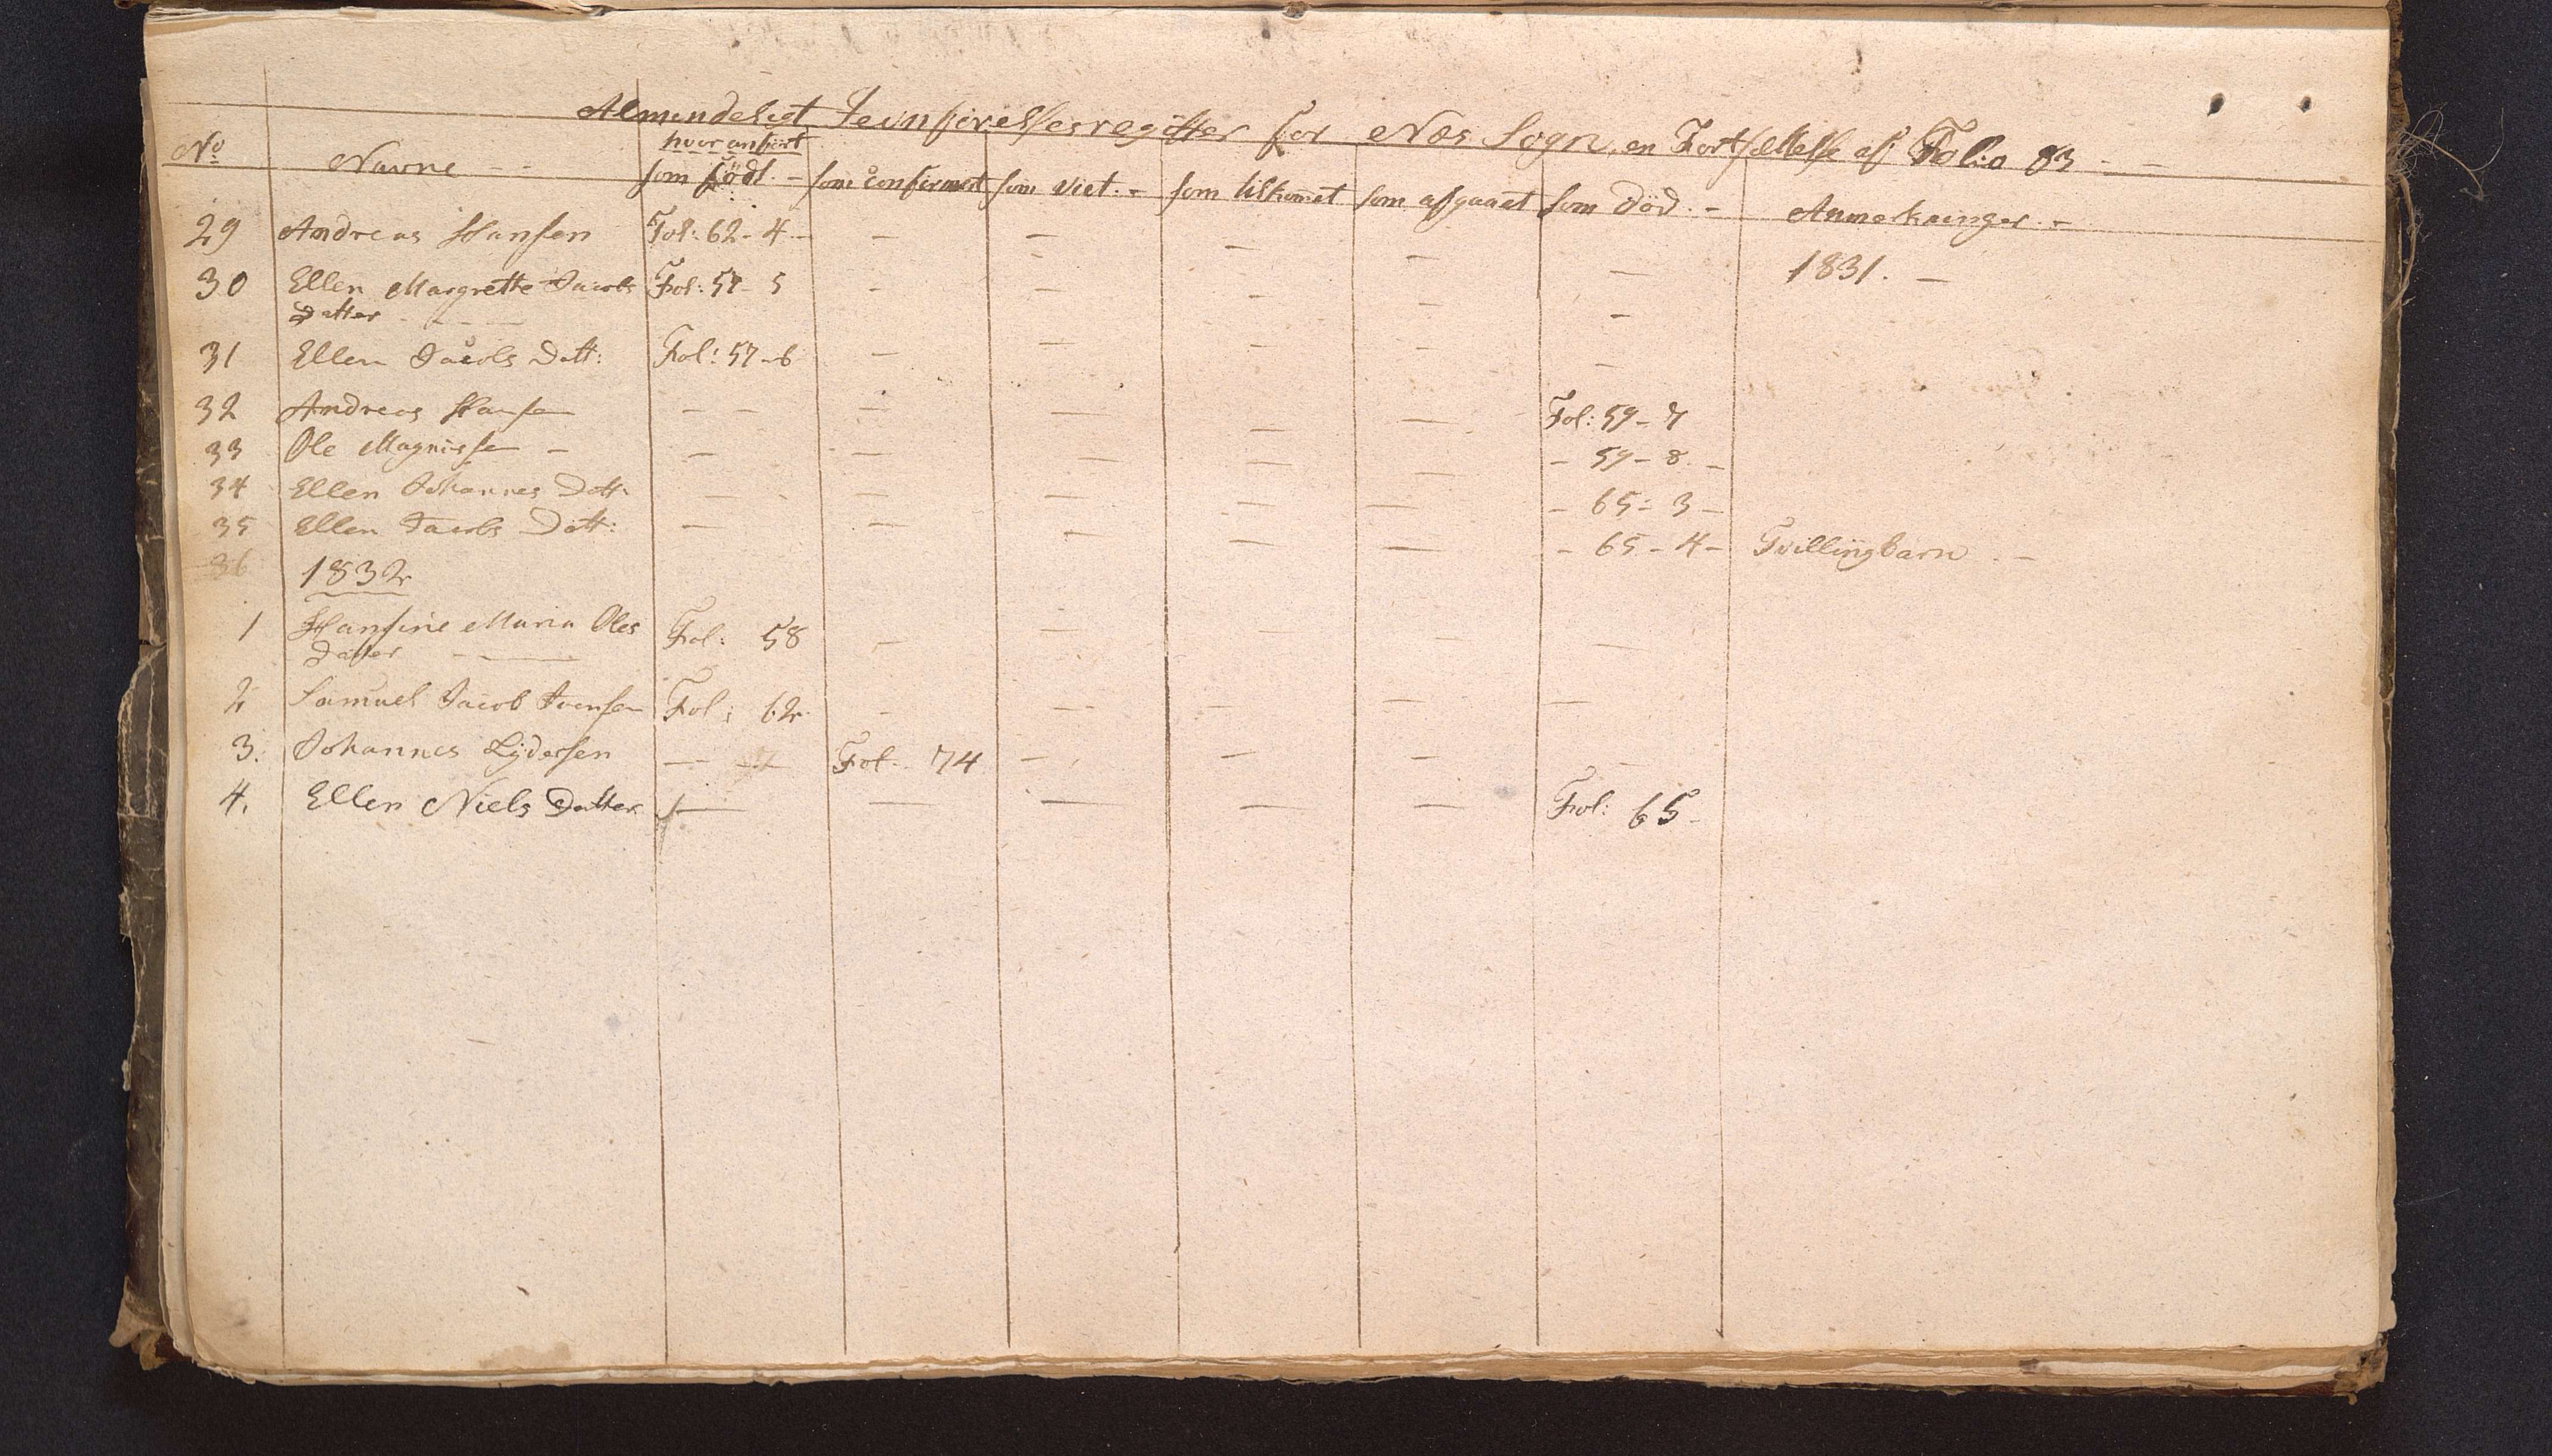 Almindeligt Jevnførelsesregister for Næs Sogn, en Fortsættelse af Folio 83 - -
No Navne - - hvor anført som født. - som confirmeret som viet. - som tilkomet som afgaaet som Död. - Anmerkninger. -
29 Andreas Hansen Fol: 62-4- - - - - - 1831. -
30 Ellen Margrette Jacobs Fol: 57- 5 - - - - -
Datter - - -
31 Ellen Jacobs Datt: Fol: 57-6 - - - - -
32 Andreas Hansen - - - - - - Fol: 59-7
33 Ole Magnissen - - - - - - - 59-8. -
34 Ellen Johannes Datt: - - - - - - 65-3-
35 Ellen Jacobs Datt: - - - - - - 65-4- Tvillingbarn. -
36 1832
1 Hansine Maria Oles Fol: 58 - - - - -
Datter - -
2 Samuel Jacob Joensen Fol: 62. - - - - -
3. Johannes Lydersen - - Fol. 74 - - - -
4. Ellen Niels Datter - - - - - Fol: 65-